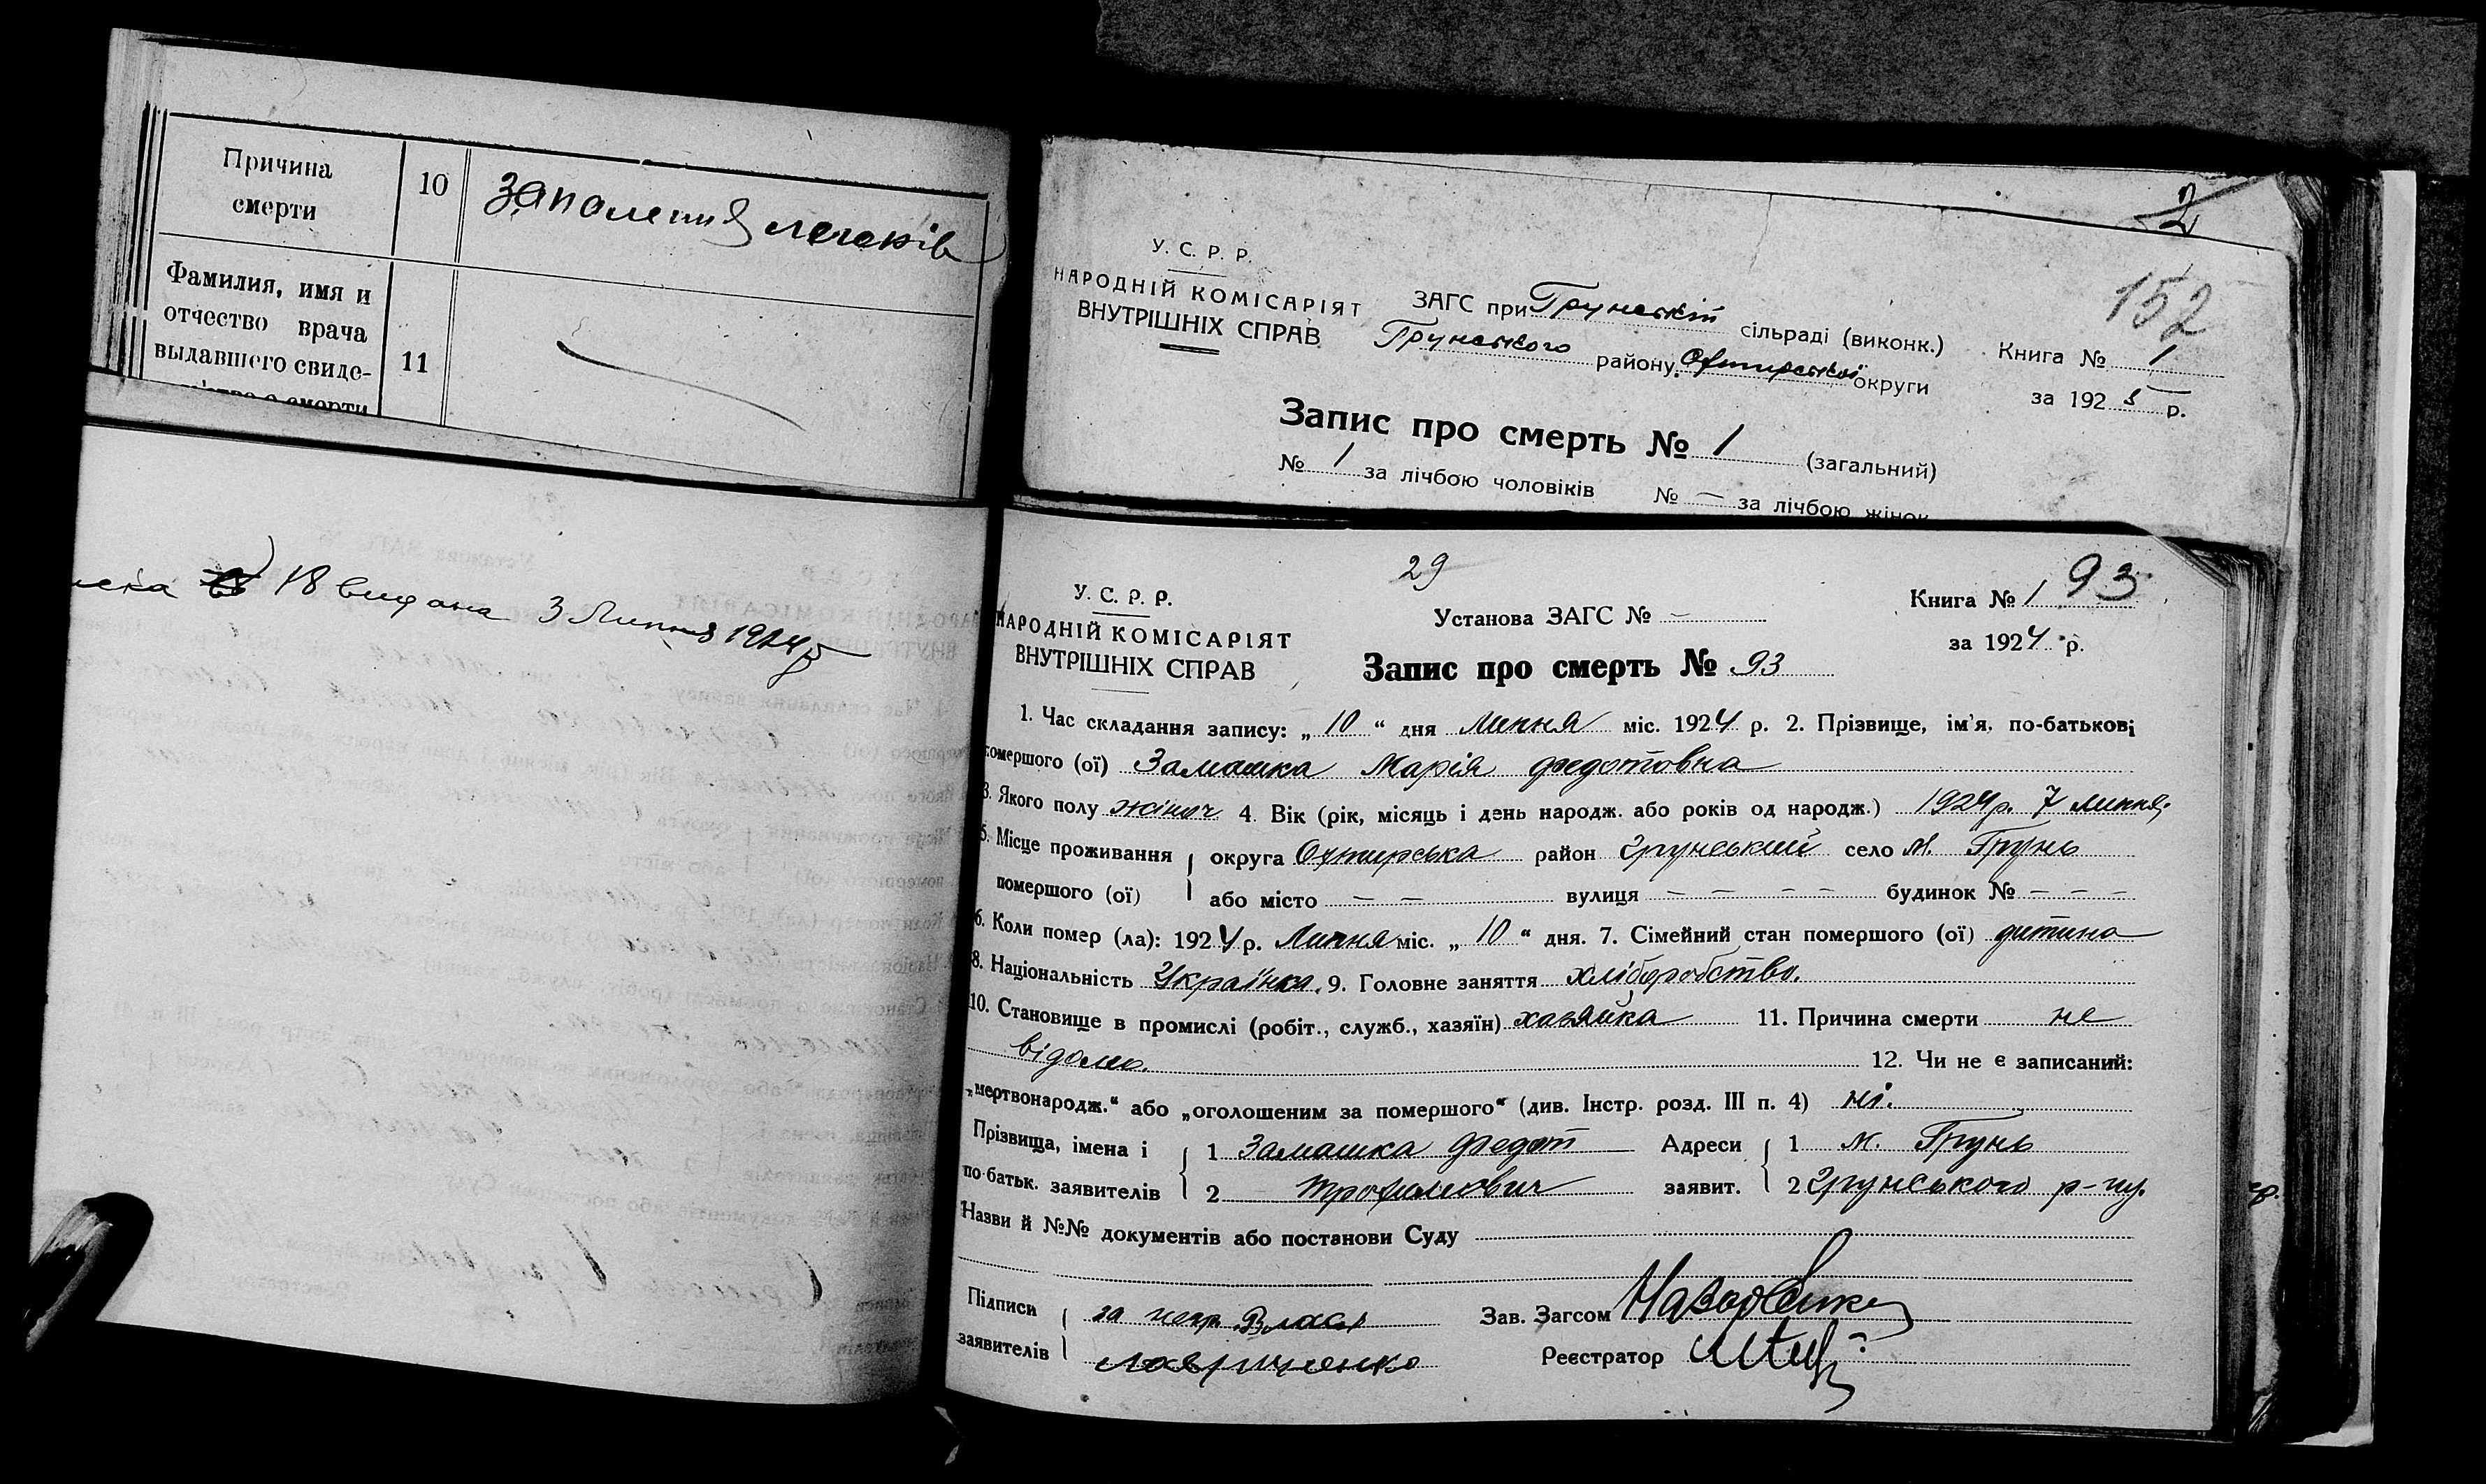 Причина
смерти
10
Запалення легеків
Фамилия, имя и
отчество врача
выдавшего свиде-
11
18 видана 3 Липня 1924 р
2
152
У. С. Р. Р.
НАРОДНІЙ КОМІСАРІЯТ
ВНУТРІШНІХ СПРАВ
ЗАГС при Грунській сільраді (виконк.)
Грунського району Охтирської округи
Книга № 1
за 1925 р.
Запис про смерть № 1 (загальний)
№ 1 за лічбою чоловіків № — за лічбою жінок
29
93
У. С. Р. Р.
НАРОДНІЙ КОМІСАРІЯТ
ВНУТРІШНІХ СПРАВ
Установа ЗАГС № –
Книга № 1
за 1924 р.
Запис про смерть № 93
1. Час складання запису: „ 10 “ дня Липня міс. 1924 р. 2. Прізвище, ім’я, по-батькові
помершого (ої) Замашка Марія Федотовна
3. Якого полу жіноч. 4. Вік (рік, місяць і день народж. або років од народж.) 1924 р. 7 липня
5. Місце проживання округа Охтирська район Грунський село М. Грунь
помершого (ої) або місто – – вулиця – – – – будинок № – – –
6. Коли помер (ла): 1924 р. Липня міс. „ 10 “ дня. 7. Сімейний стан помершого (ої) дитина
8. Національність Українка. 9. Головне заняття хліборобство.
10. Становище в промислі (робіт., служб., хазяїн) хазяйка 11. Причина смерти не
відомо. 12. Чи не є записаний:
„мертвонародж.“ або „оголошеним за помершого“ (див. Інстр. розд. III п. 4) ні.
Прізвища, імена і 1 Замашка Федот Адреси 1 м. Грунь
по-батьк. заявителів 2 Трофимович заявит. 2 Грунського р-ну.
Назви й №№ документів або постанови Суду
Підписи за непр. Зав. Загсом
заявителів Лавриченко Реєстратор